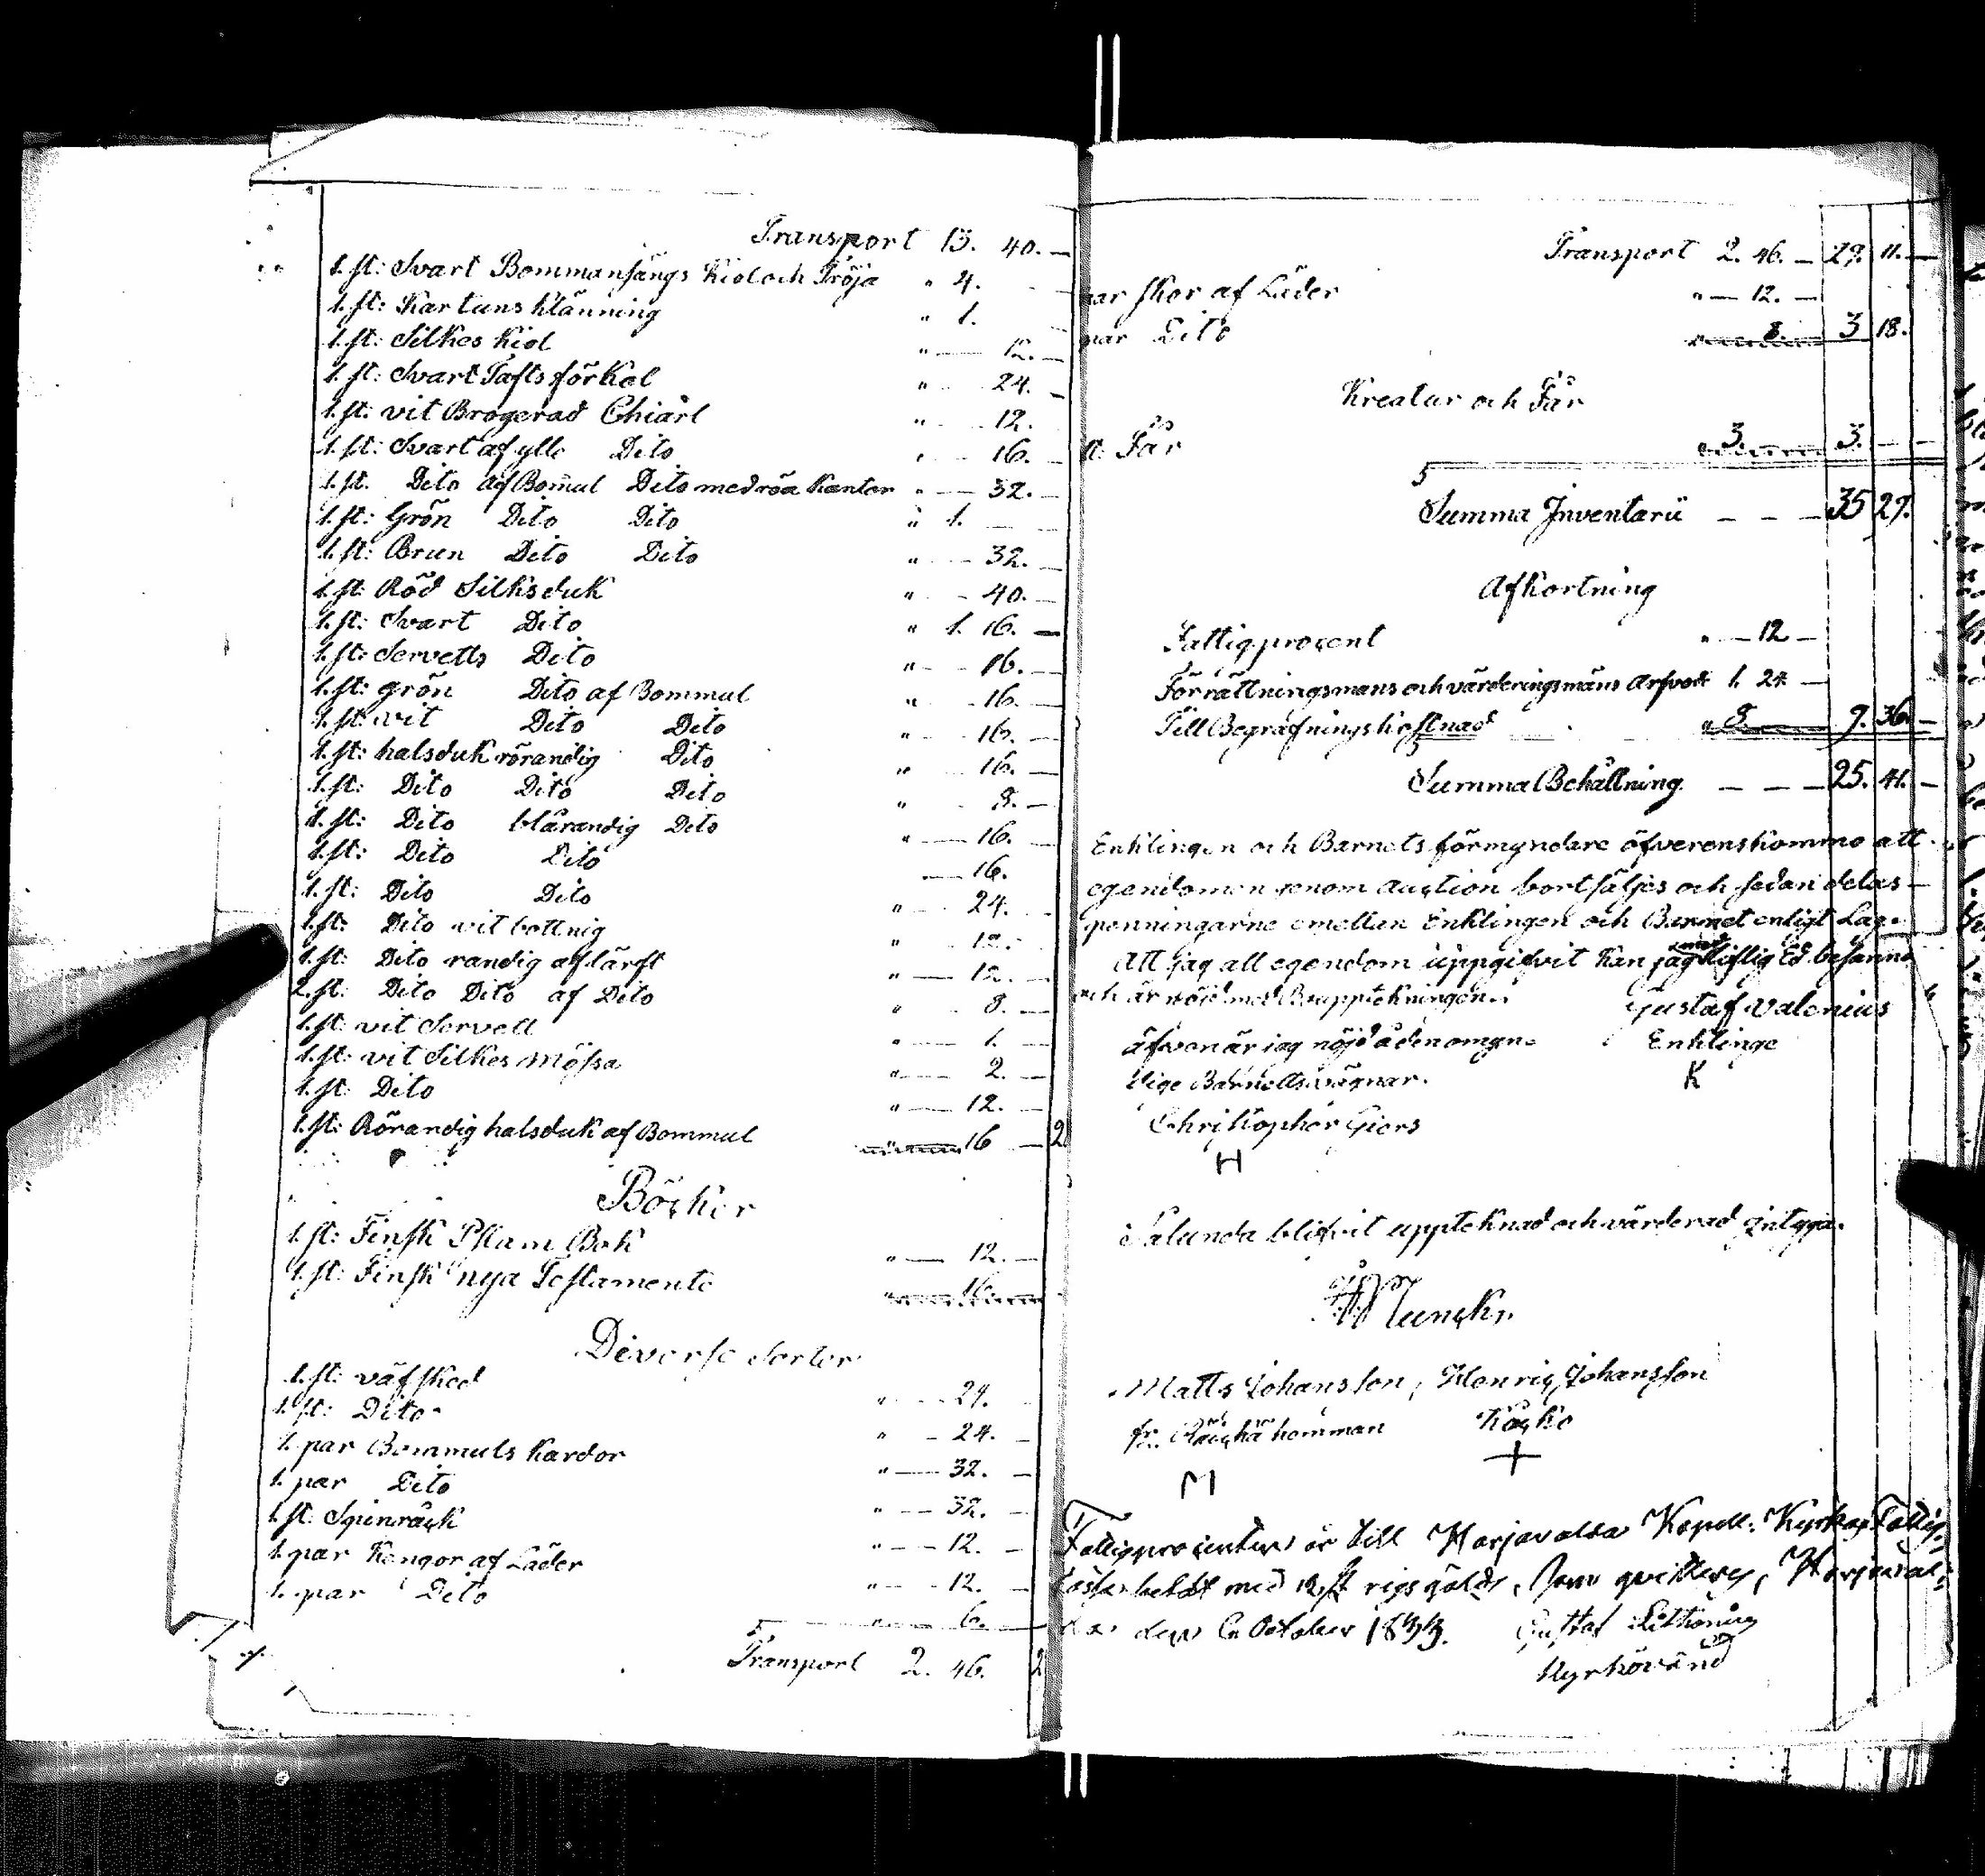 Transport 13. 40. —
1. st: Svart Bommansängs Kiol och Tröja " 4.
1. st: Kartuns Klänning " 1.
1. st: Silkes Kiol " — 12. —
1. st: Svart Tafts förkel " 24. —
1. st: vit Brogerad Chiarl " 12.
1. st: Svart af ylle Dito " 16. —
1. st. Dito af Bom̄ul Dito med röa Kanter " — 32. —
1. st: Grön Dito Dito " 1. —
1. st: Brun Dito Dito " — 32. —
1. st: Röd Silksduk " — 40. —
1. st: Svart Dito " 1. 16. —
1. st: Servetts Dito " — 16. —
1. st: grön Dito af Bommul " 16. —
1. st: vit Dito Dito " 16. —
1. st: halsduk rörandig Dito " 16. —
1. st: Dito Dito Dito " 8. —
1. st: Dito blärandig Dito " — 16. —
1. st: Dito Dito — 16.
1. st: Dito Dito " 24.
1. st: Dito vit bottnig " — 12.
1. st: Dito randig af lärft " — 12. —
2. st: Dito Dito af Dito " — 8. —
1. st: vit Servett " — 1. —
1. st: vit Silkes Mössa " — 2. —
1. st: Dito " — 12. —
1. st: Rörandig halsduk af Bommul 16 — 2
Böcker
1. st: Finsk Psalm Bok " — 12. —
1. st: Finsk nya Testamente 16.
Diverse Sorter
1. st: väfsked " — 24.
1. st: Dito " — 24. —
1. par Bommuls Kardor " — 32. —
1. par Dito " — 32. —
1. st. Spinråck " — 12. —
1. par Kengor af Läder " — 12. —
1. par Dito " — 6. —
Transport 2. 46. 2
Transport 2. 46. — 29. 11. —
par skor af Läder " — 12. —
par Dito 8. 3 18.
Kreatur och Får
st: Får 3. 3. —
Summa Inventarii — — — 35 29.
Afkortning
Fattigprocent " — 12 —
Förrättningsmans och värderingsmäns Arfvode 1. 24 —
Till Begrafningskostnad " 8. 9. 36. —
Summa Behållning — — — 25. 41. —
Enklingen och Barnets förmyndare öfverenskommo att
egendomen genom auction bortsäljes och sedan delas
penningarne emellan Enklingen och Barnet enligt Lag.
Att jag all egendom uppgifvit kan jag med Liflig Ed besanna
och är nöjd med Bouppteckningen. Gustaf Valenius
äfven är jag nöjd å den omyn= Enklinge
dige Barnetts vägnar. K
Christopher Giers
H
Sålunda blifvit uppteknad och värderad intyga.
Munck
Matts Johansson, Henric Johansson
fr. hemman Käckö
M +
Fattigprocenten är till Harjavalda Kapell: Kyrkas Fattig=
kassa betalt med 12 st rigsgälds, som qvitteras, Harjaval=
da den 6 October 1833. Gustaf
Kyrkovärd